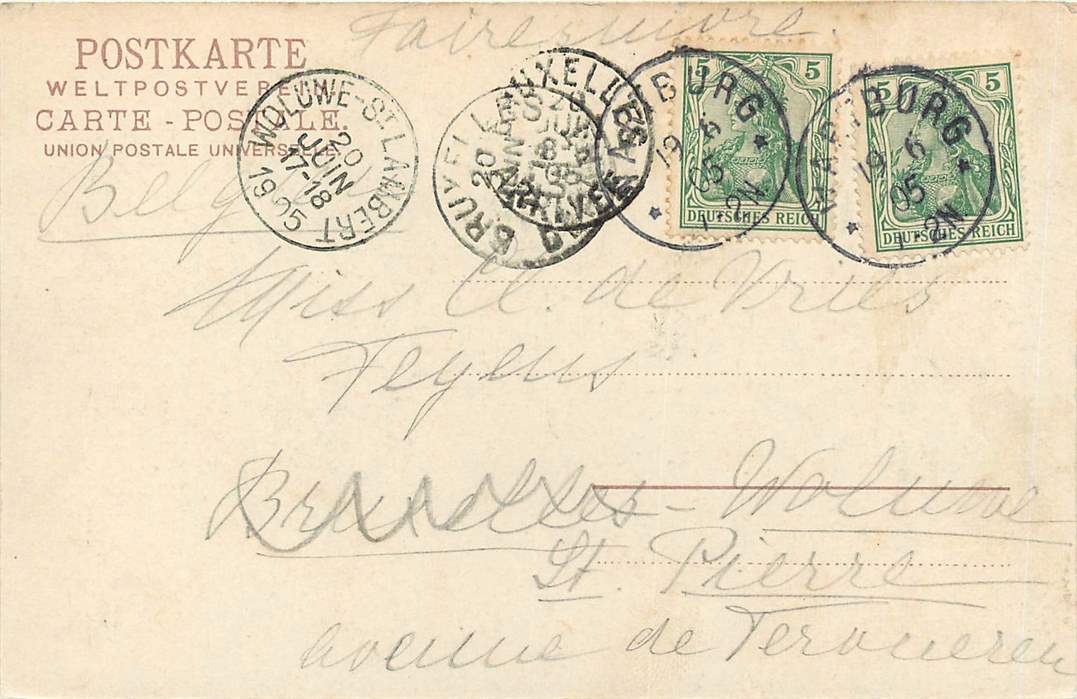 Faire suivre.
POSTKARTE
WELTPOSTVEREIN
CARTE - POSTALE.
UNION POSTALE UNIVERSELLE
WOLUWE-ST LAMBERT
20
JUIN
17-18
1905
BRUXELLES
ARRIVEE
BURG
19 6
05
5 5
DEUTSCHES REICH
BURG
19 6
05
5
DEUTSCHES REICH
Miss A. de Vries
Feyens
Bruxelles - Woluwe
St. Pierre
avenue de Tervueren